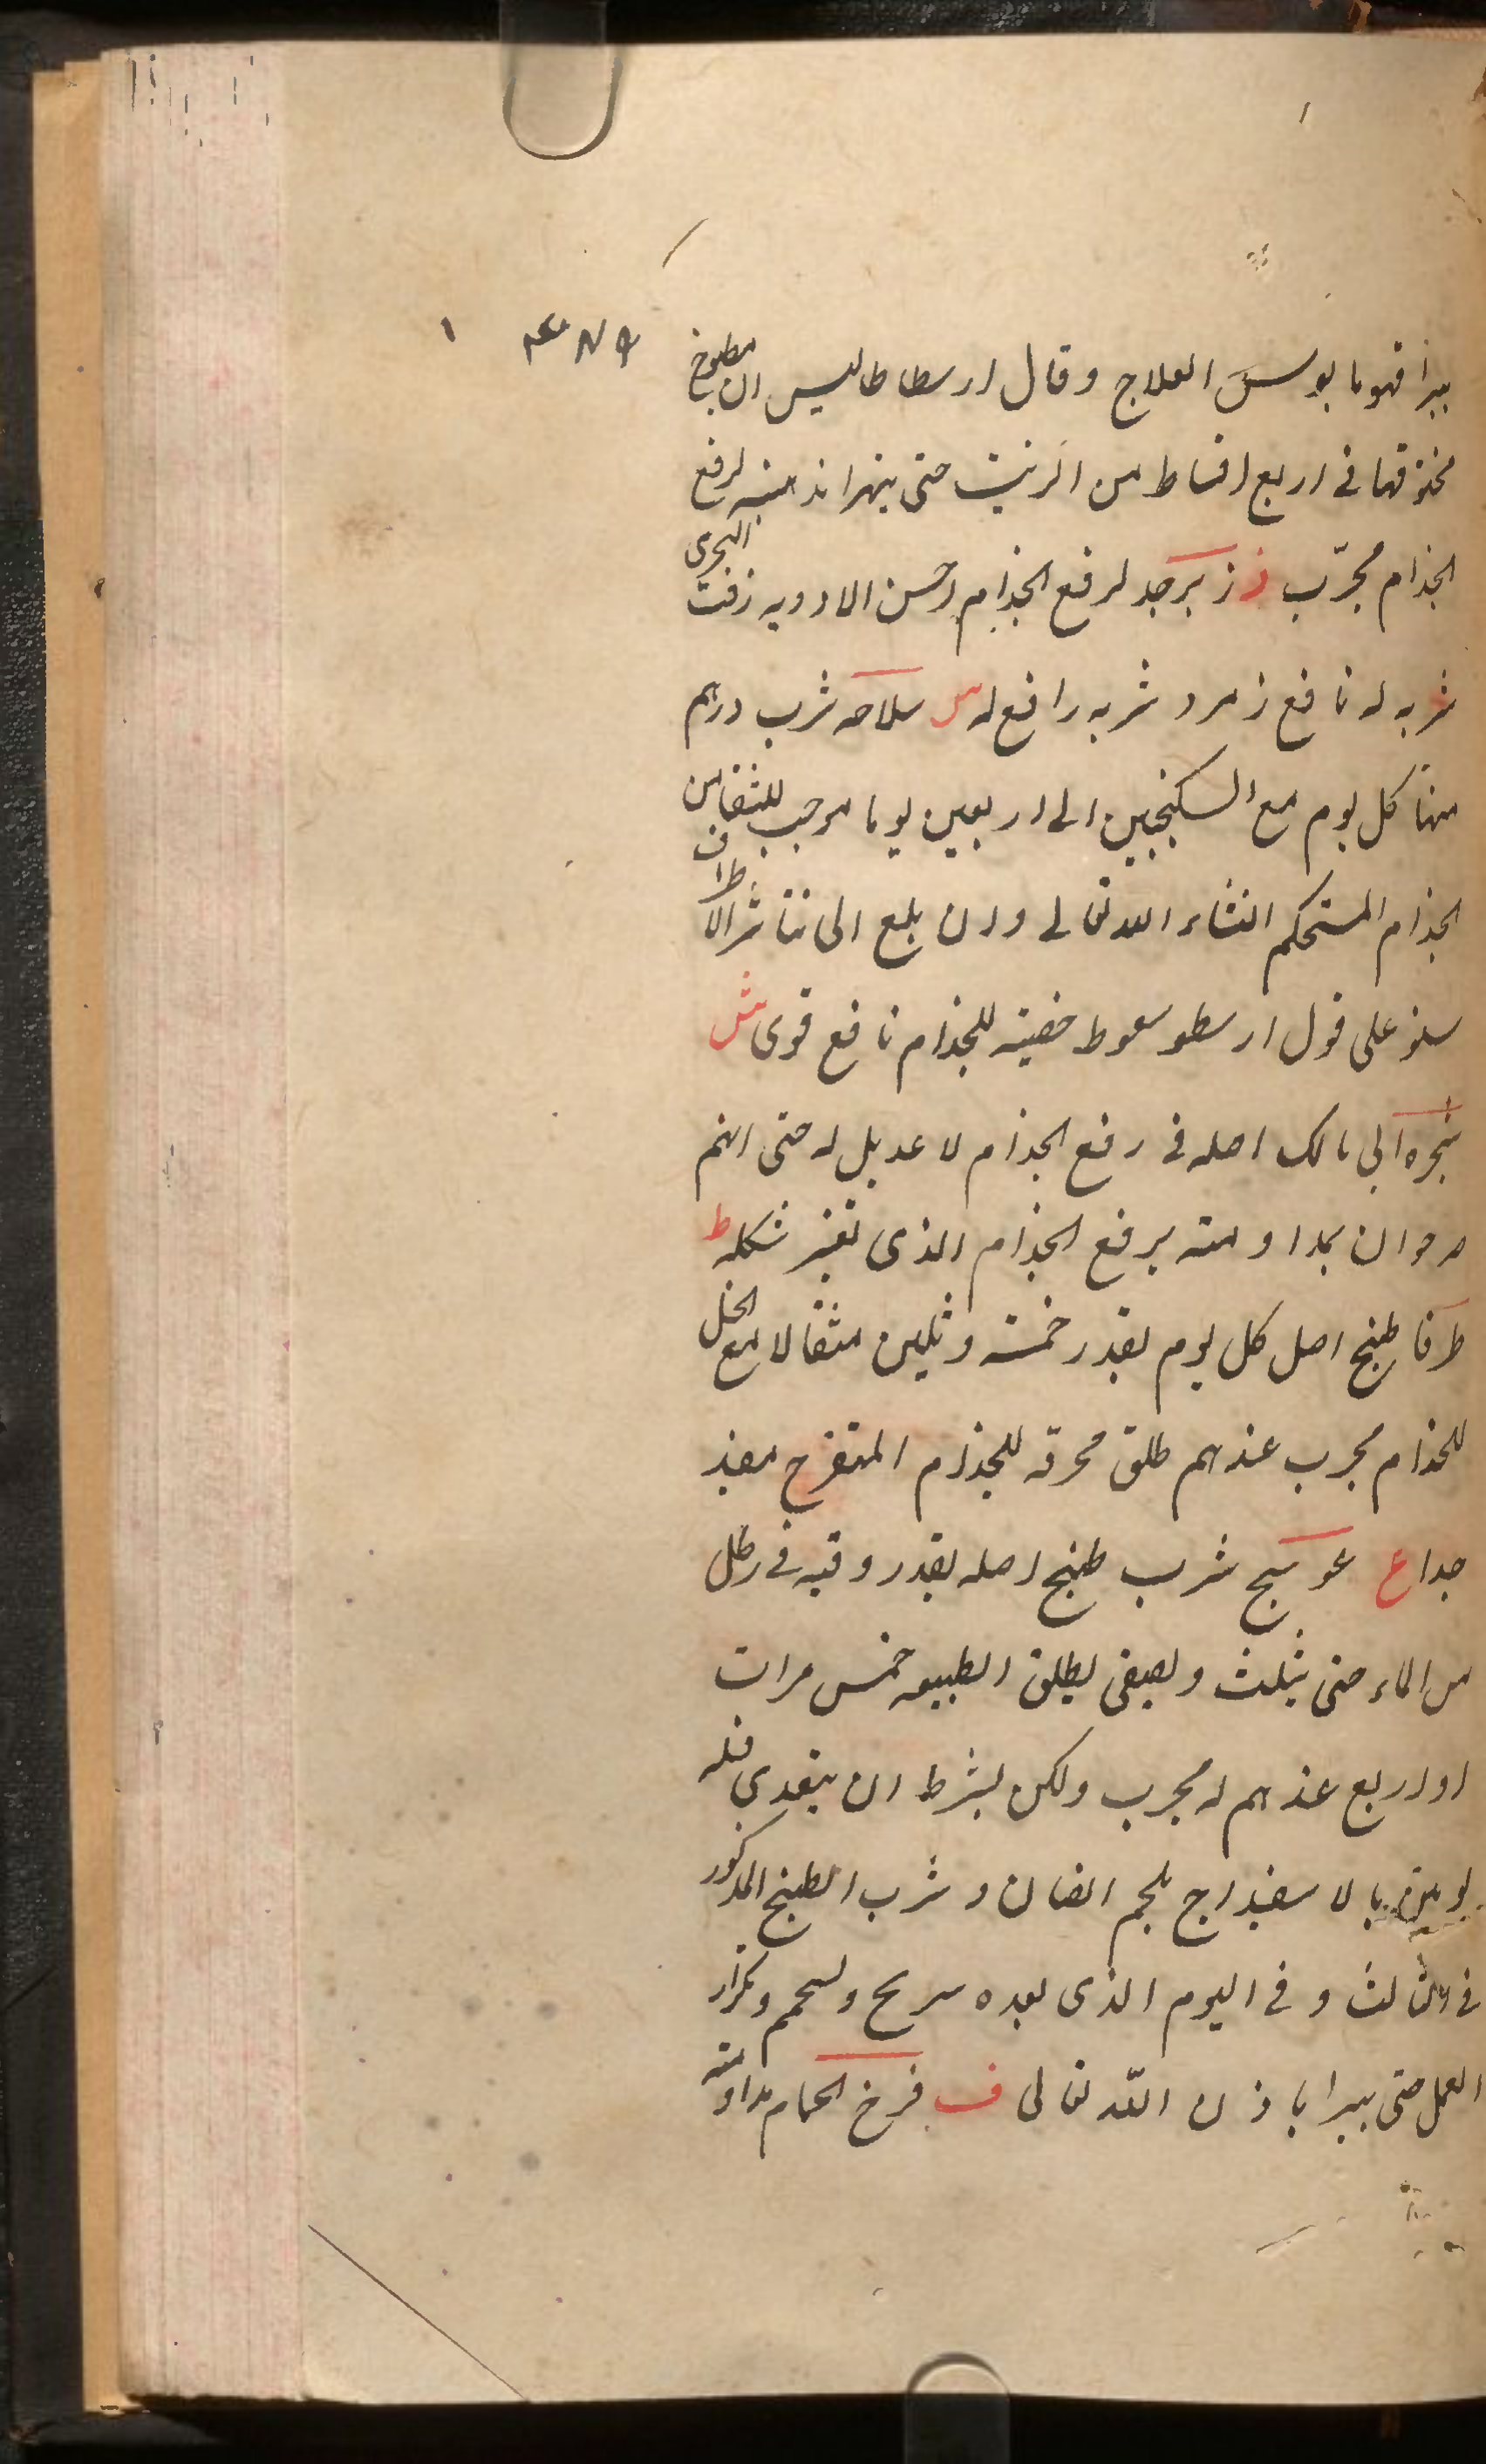 يبرأ فهو مايوس العلاج وقال ارسطاطاليس ان مطبوخ
فى اربع اقساط من الزيت حتى يتهرا لرفع
الجذام مجرّب ز زبرجد لرفع الجذام احسن الادويه زفت البحرى
شربه له نافع زمرد شربه رافع له س سلاحه شرب درهم
منها كل يوم مع السكنجبين الى اربعين يوما موجب
الجذام المستحكم انشاء الله تعالى وان بلغ الى تناثر الاطراف
على قول ارسطو سعوط للجذام نافع قوى ش
شجره ابى مالك اصله فى رفع الجذام لا عديل له حتى انهم
ان بمداومته يرفع الجذام الذى تغير شكله ط
طرفا طبخ اصل كل يوم بقدر خمسة وثلثين مثقالا مع الخل
للجذام مجرب عندهم طلق محرقه للجذام المتقرح مفيد
جدا ع عوسج شرب طبخ اصله بقدر وقيه فى رطل
من الماء حتى يثلث ويصفى يطلق الطبيعه خمس مرات
او اربع عندهم له مجرب ولكن بشرط ان يتغدى قبله
يومين بالاسفيداج بلحم الضان وشرب الطبخ المذكور
فى الثالث وفى اليوم الذى بعده يريح ويحم وتكرار
العمل حتى يبرا باذن الله تعالى ف فرخ الحمام مداومته